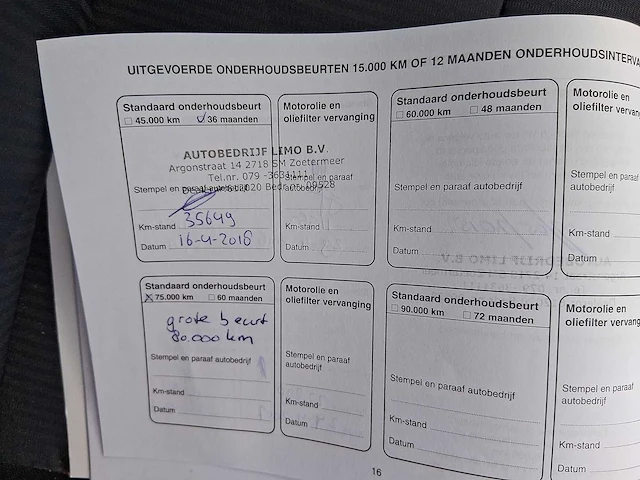 UITGEVOERDE ONDERHOUDSBEURTEN 15.000 KM OF 12 MAANDEN ONDERHOUDSINTERVA
Standaard onderhoudsbeurt
45.000 km 36 maanden
Motorolie en
oliefilter vervanging
AUTOBEDRIJF LIMO B.V.
Argonstraat 14 2718 SM Zoetermeer
Tel.nr. 079 -3631111
Stempel en paraaf autobedrijf
Stempel en paraaf
autobedrijf
Km-stand 35649
Datum 16-4-2018
Km-stand
Datum
Standaard onderhoudsbeurt
60.000 km 48 maanden
Stempel en paraaf autobedrijf
Km-stand
Datum
Motorolie en
oliefilter vervang
Stempel en paraaf
autobedrijf
Km-stand
Datum
Standaard onderhoudsbeurt
75.000 km 60 maanden
grote beurt
80.000 km
Stempel en paraaf autobedrijf
Km-stand
Datum
Motorolie en
oliefilter vervanging
Stempel en paraaf
autobedrijf
Km-stand
Datum
Standaard onderhoudsbeurt
90.000 km 72 maanden
Stempel en paraaf autobedrijf
Km-stand
Datum
Motorolie en
oliefilter vervang
Stempel en paraaf
autobedrijf
Km-stand
Datum
16